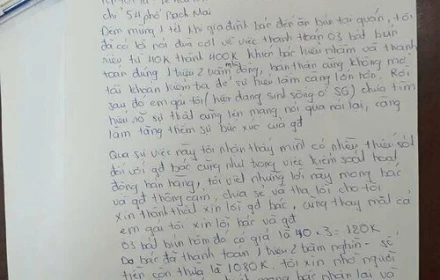 chỉ 54 phố Bạch Mai
Đêm mùng 1 tết khi gia đình bác đến ăn bún tại quán, tôi
đã có lời nói đùa với về việc thanh toán 03 bát bún
riêu từ 40K thành 400K khiến bác hiểu nhầm và thanh
toán đúng 1 triệu 2 trăm đồng, bản thân cũng không mở
tài khoản kiểm tra để sự hiểu lầm càng lớn hơn. Rồi
sau do em gái tôi (hiện đang sinh sống ở SG) chưa tìm
hiểu rõ sự thật cũng lên mạng nói qua nói lại, càng
làm tăng thêm sự bức xúc của gđ
Qua sự việc này tôi nhận thấy mình có nhiều thiếu sót
đối với gđ bác cũng như trong việc kiểm soát hoạt
động bán hàng, tôi viết những lời này mong bác
và gđ thông cảm, chia sẻ và tha lỗi cho tôi
xin thành thật xin lỗi gđ bác, cũng thay mặt cả
em gái tôi xin lỗi bác và gđ
03 bát bún hôm đó có giá là 40 . 3 = 120K
Do bác đã thanh toán 1 triệu 2 trăm nghìn - số
tiền còn thừa là 1080K, tôi xin nhờ người
bác nhận lại và